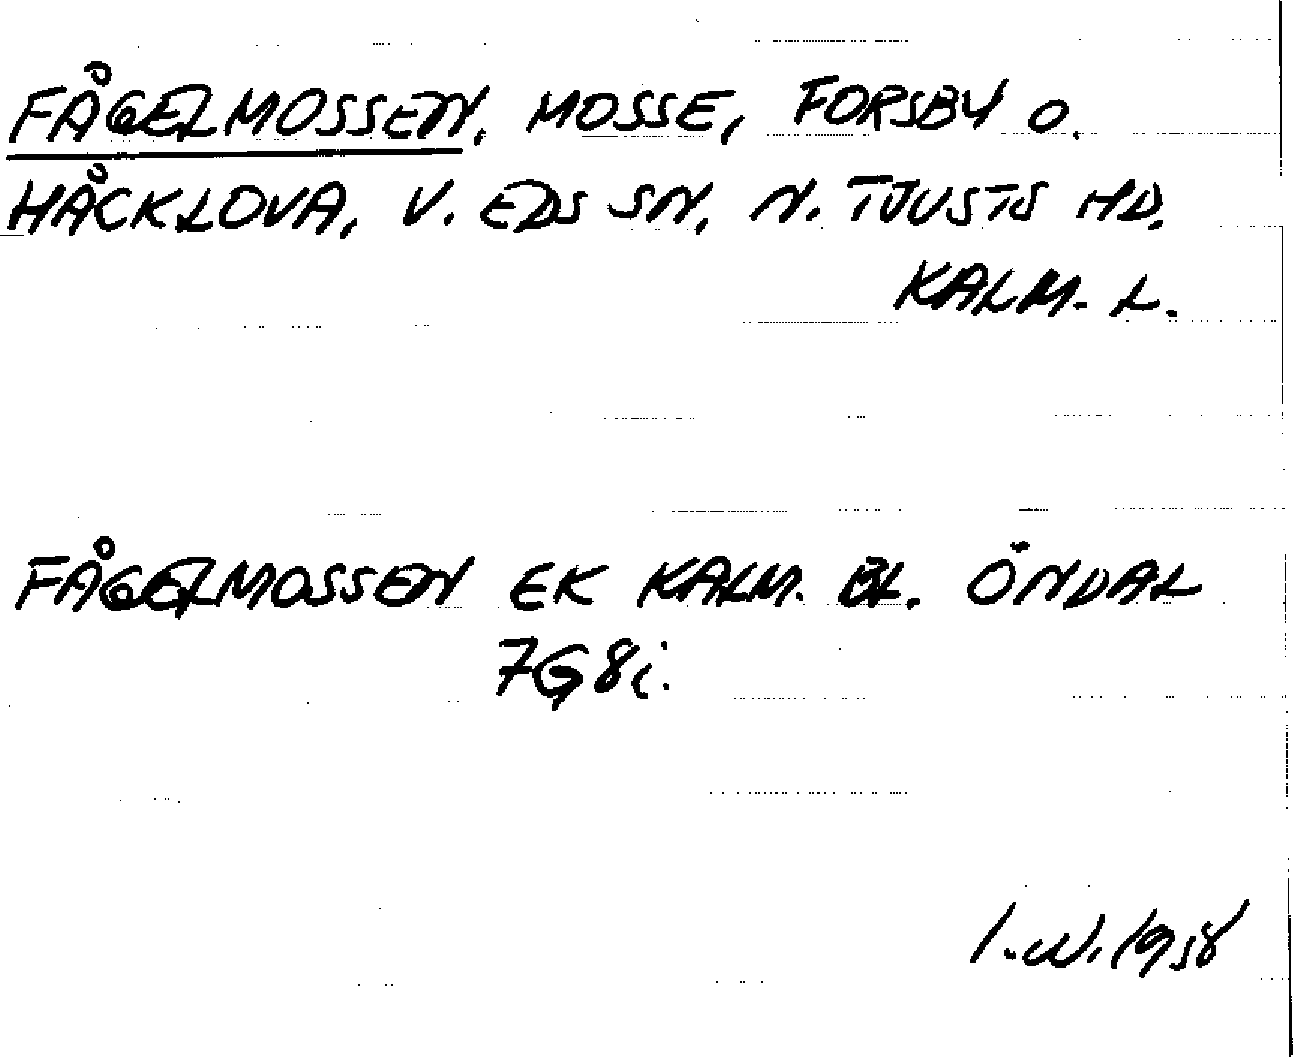 FÅGELMOSSEN, MOSSE, FORSBY O.
HÅCKLOVA, V. EDS SN, N. TJUSTS HD.
KALM. L.
FÅGELMOSSEN EK KALM. BL. ÖNDAL
7G8i.
I.W. 1958